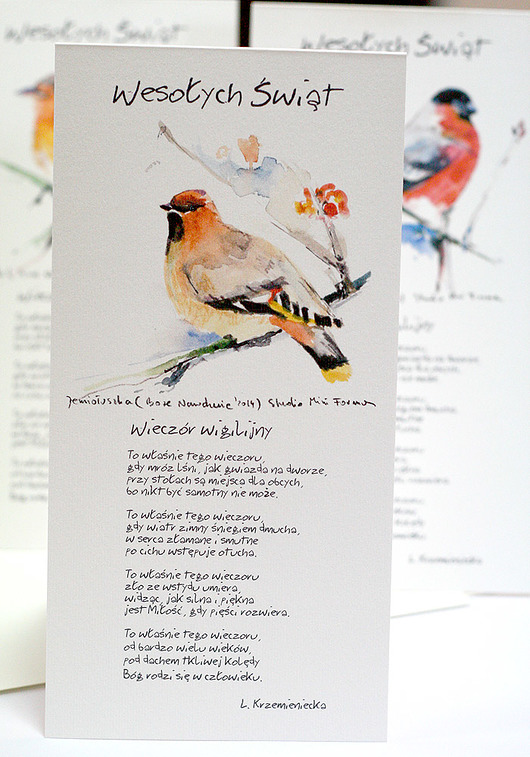 Wesołych Świąt
Wesołych Świąt
Wesołych Świąt
Jemiołuszka (Boże Narodzenie '2014) Studio
Wieczór wigilijny
To właśnie tego wieczoru,
gdy mróz lśni, jak gwiazda na dworze,
przy stołach są miejsca dla obcych,
bo nikt być samotny nie może.
To właśnie tego wieczoru,
gdy wiatr zimny śniegiem dmucha,
w serca złamane i smutne
po cichu wstępuje otucha.
To właśnie tego wieczoru
zło ze wstydu umiera,
widząc, jak silna i piękna
jest Miłość, gdy pięści rozwiera.
To właśnie tego wieczoru,
od bardzo wielu wieków,
pod dachem tkliwej kolędy
Bóg rodzi się w człowieku.
L. Krzemieniecka
L. Krzemieniecka